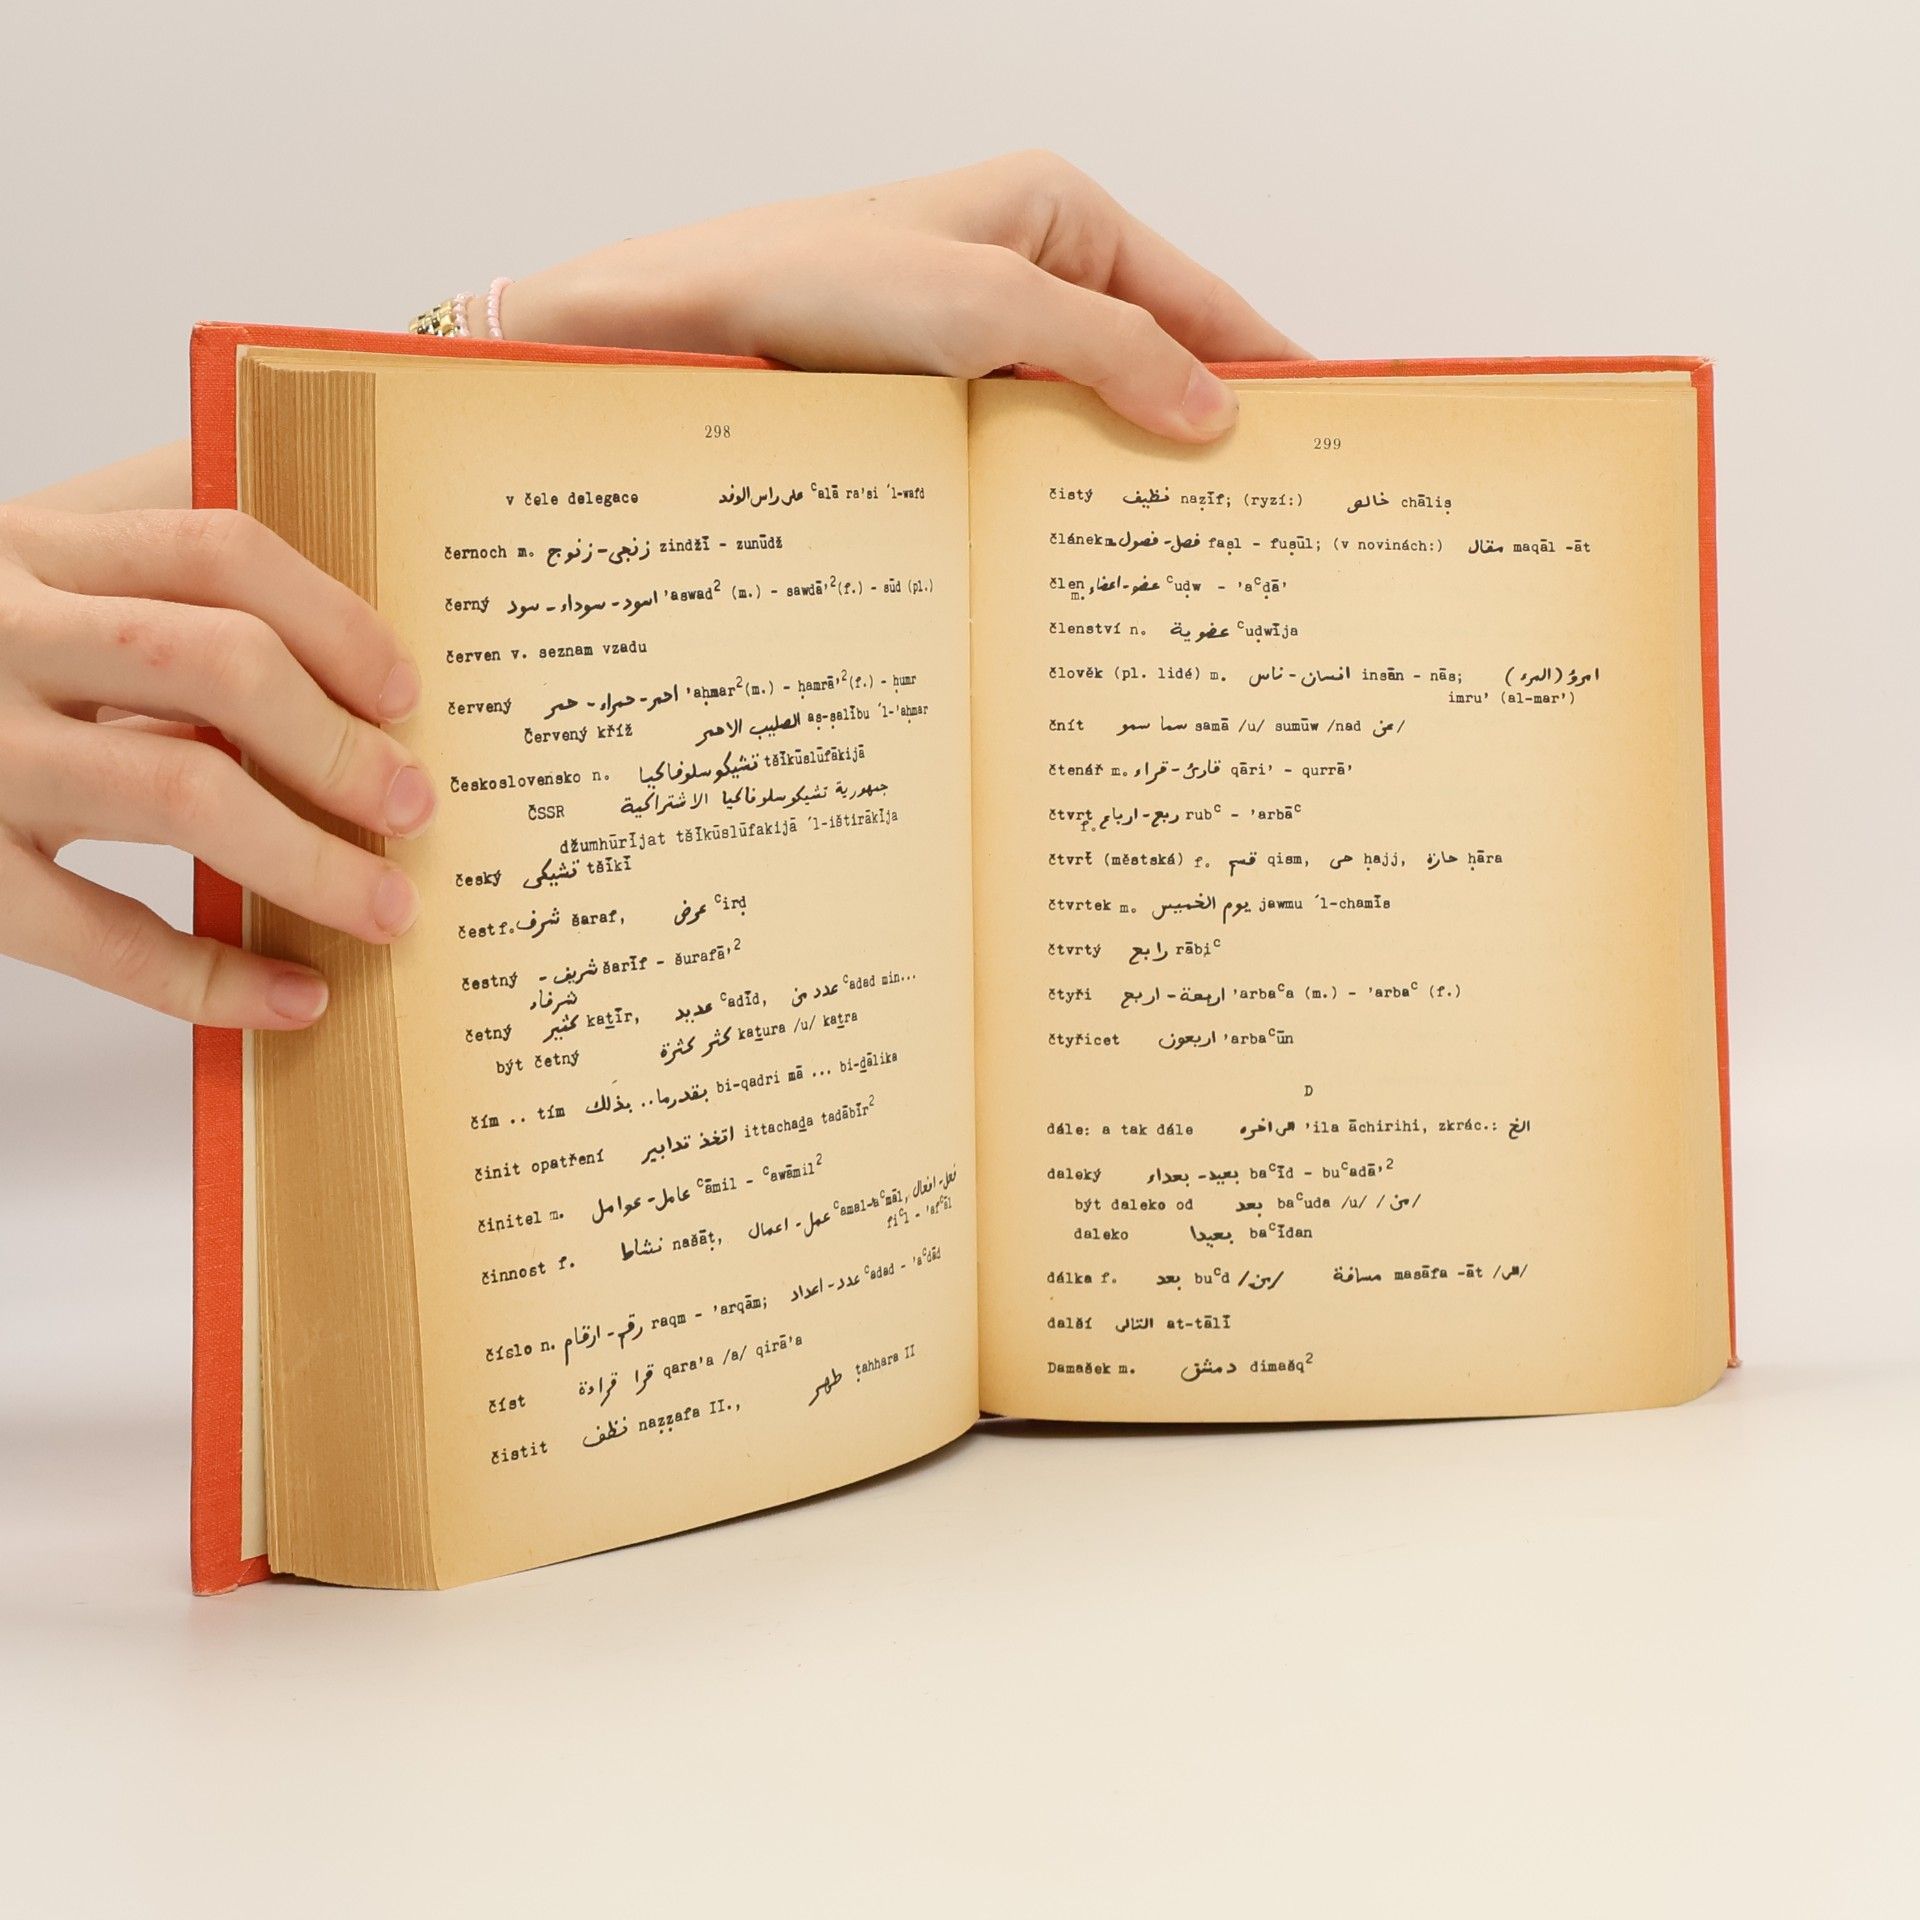 298
v čele delegace على راس الوفد ᶜalā ra'si ´l-wafd
černoch m. زنجى - زنوج zindžī - zunūdž
černý اسود - سوداء - سود 'aswad² (m.) - sawdā'²(f.) - sūd (pl.)
červen v. seznam vzadu
červený احمر - حمراء - حمر 'aḥmar²(m.) - ḥamrā'²(f.) - ḥumr
Červený kříž الصليب الاحمر aṣ-ṣalību ´l-'aḥmar
Československo n. تشيكوسلوفاكيا tšīkūslūfākijā
ČSSR جمهورية تشيكوسلوفاكيا الاشتراكية
džumhūrījat tšīkūslūfakijā ´l-ištirākīja
český تشيكى tšīkī
čest f. شرف šaraf, عرض ᶜirḍ
čestný شريف - šarīf - šurafā'²
شرفاء
četný كثير kaṯīr, عديد ᶜadīd, عدد من ᶜadad min...
být četný كثر كثرة kaṯura /u/ kaṯra
čím .. tím بقدرما.. بذلك bi-qadri mā ... bi-ḏālika
činit opatření اتخذ تدابير ittachaḏa tadābīr²
činitel m. عامل - عوامل ᶜāmil - ᶜawāmil²
činnost f. نشاط našāṭ, عمل - اعمال ᶜamal-'aᶜmāl, فعل - افعال
fiᶜl - 'afᶜāl
číslo n. رقم - ارقام raqm - 'arqām; عدد - اعداد ᶜadad - 'aᶜdād
číst قرا قراءة qara'a /a/ qirā'a
čistit نظف naẓẓafa II., طهر ṭahhara II
299
čistý نظيف naẓīf; (ryzí:) خالص chāliṣ
článek m. فصل - فصول faṣl - fuṣūl; (v novinách:) مقال maqāl -āt
člen عضو - اعضاء ᶜuḍw - 'aᶜḍā'
m.
členství n. عضوية ᶜuḍwīja
člověk (pl. lidé) m. انسان - ناس insān - nās; امرؤ (المرء)
imru' (al-mar')
čnít سما سمو samā /u/ sumūw /nad عن/
čtenář m. قارئ - قراء qāri' - qurrā'
čtvrt ربع - ارباع rubᶜ - 'arbāᶜ
f.
čtvrť (městská) f. قسم qism, حى ḥajj, حارة ḥāra
čtvrtek m. يوم الخميس jawmu ´l-chamīs
čtvrtý رابع rābiᶜ
čtyři اربعة - اربع 'arbaᶜa (m.) - 'arbaᶜ (f.)
čtyřicet اربعون 'arbaᶜūn
D
dále: a tak dále الى اخره 'ila āchirihi, zkrác.: الخ
daleký بعيد - بعداء baᶜīd - buᶜadā'²
být daleko od بعد baᶜuda /u/ /من/
daleko بعيدا baᶜīdan
dálka f. بعد buᶜd /من/ مسافة masāfa -āt /الى/
další التالى at-tālī
Damašek m. دمشق dimašq²